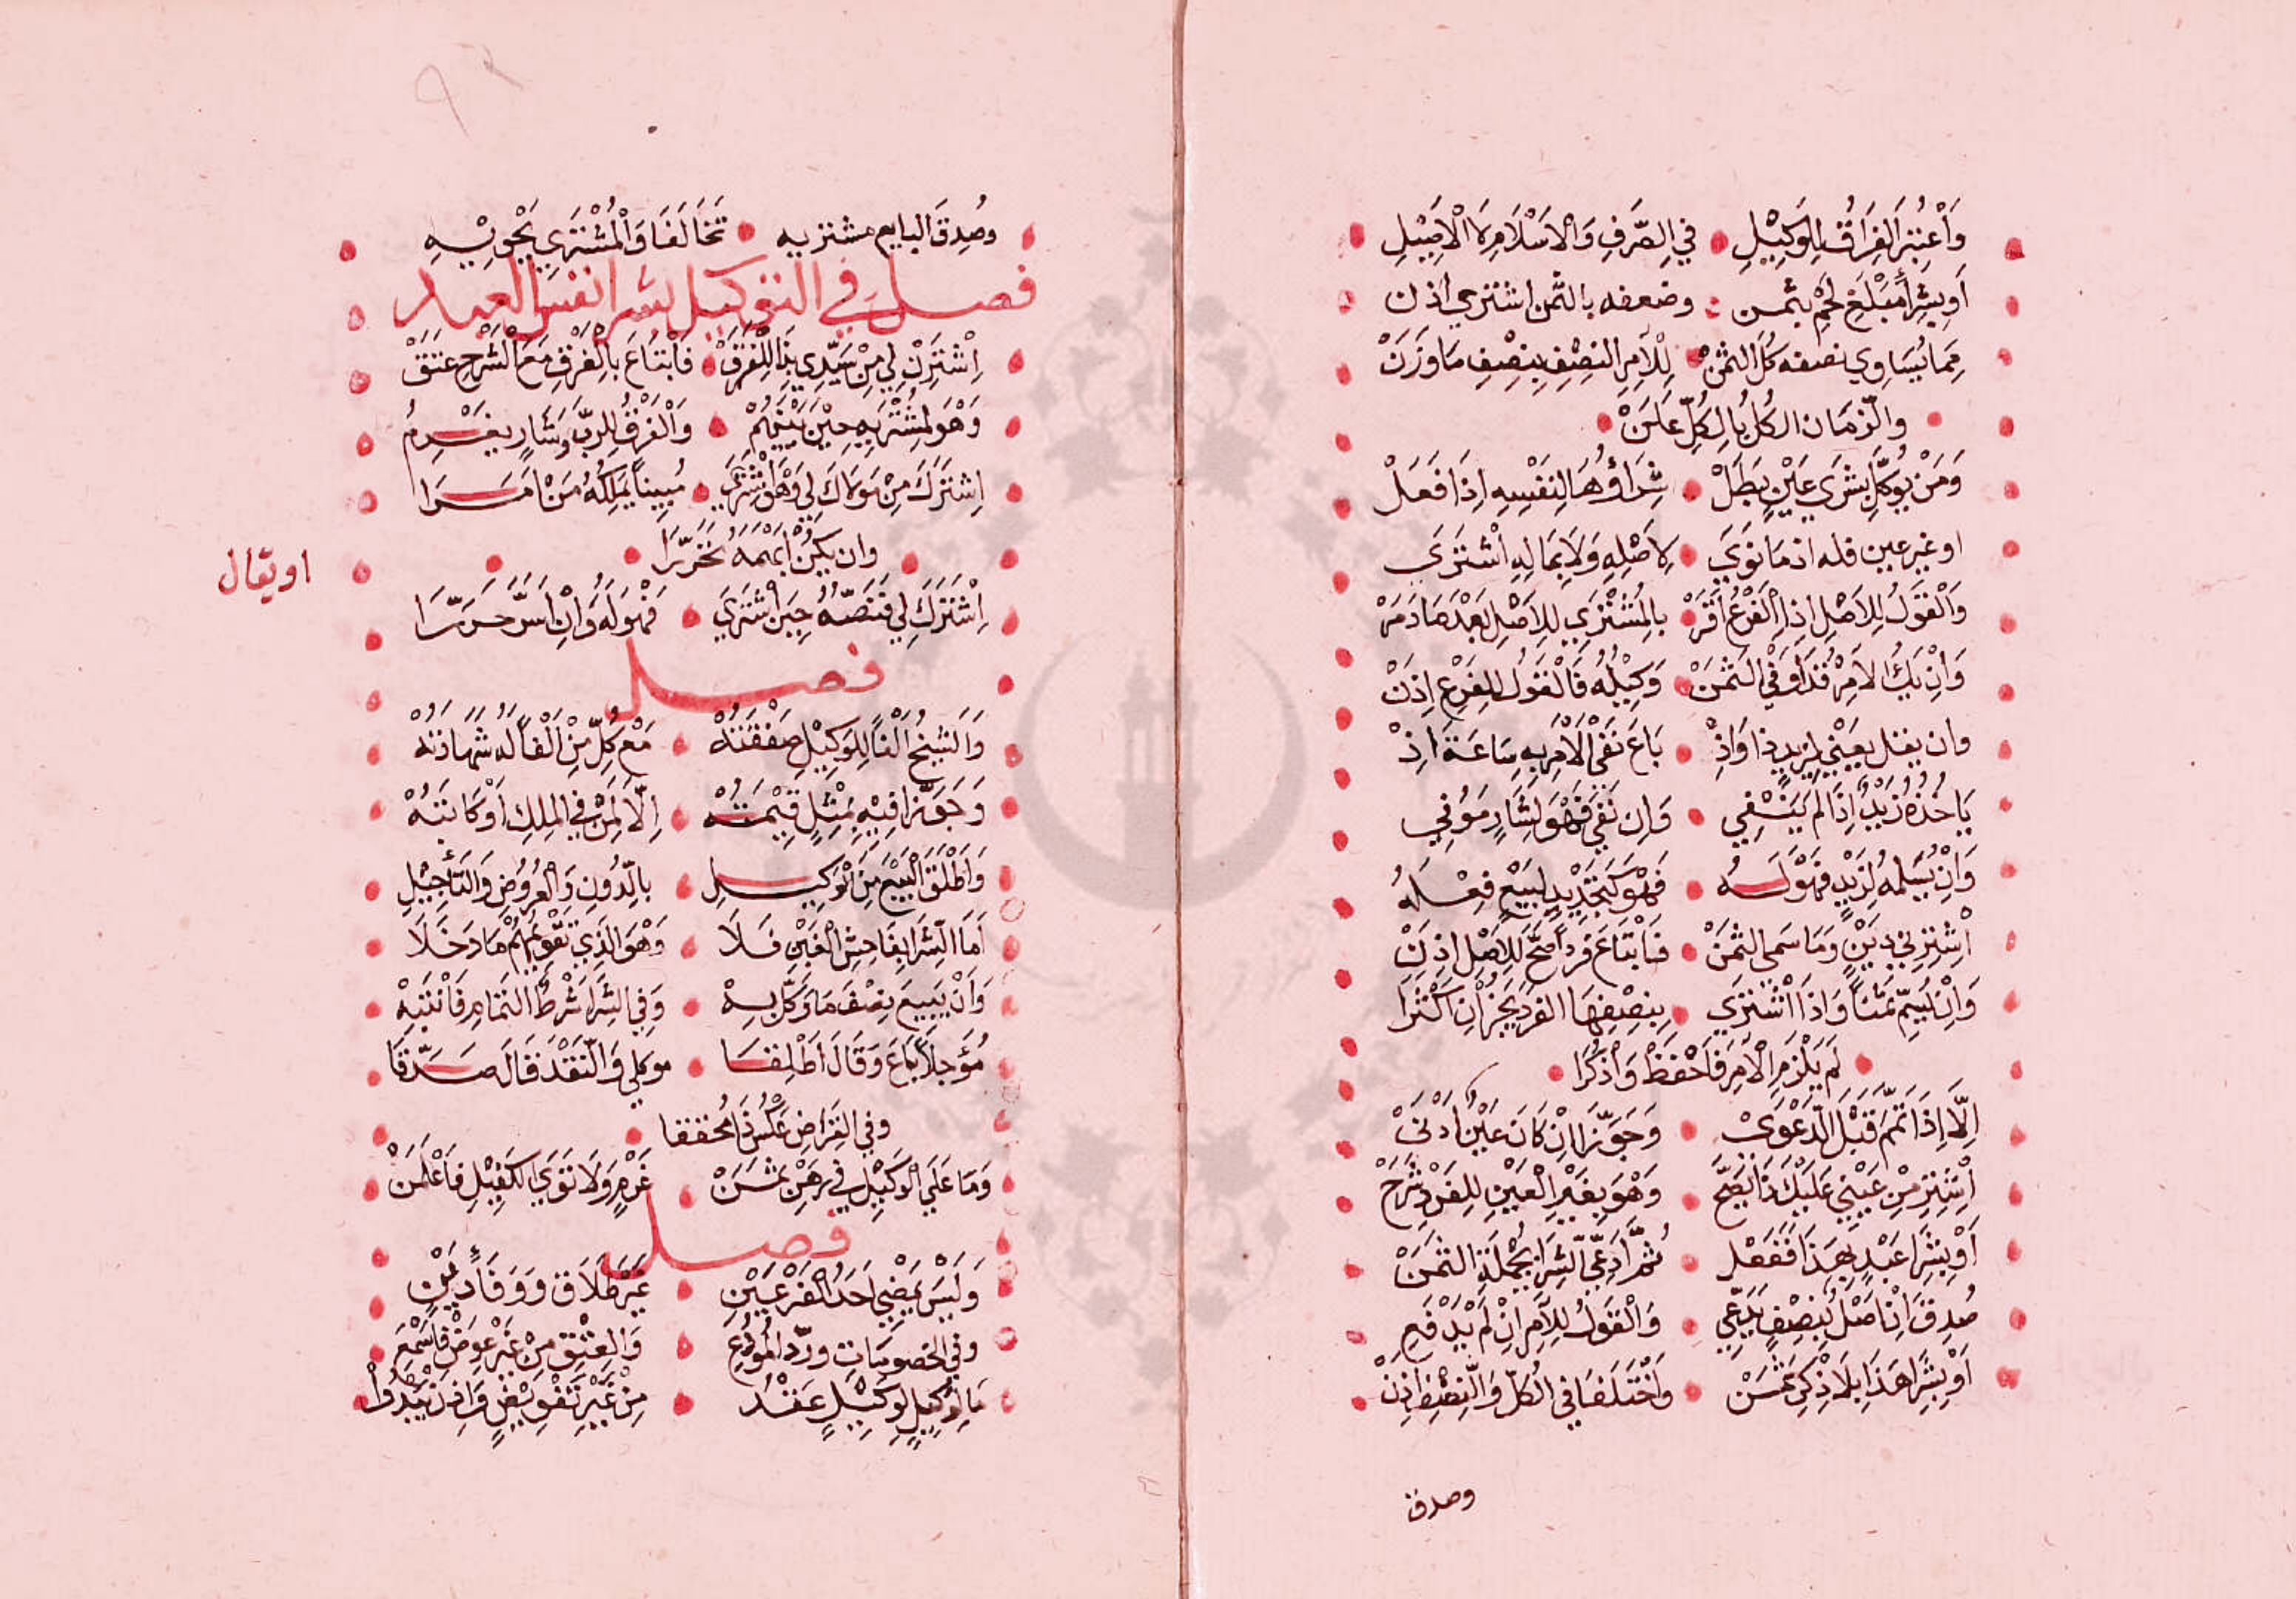 وَاعْتُبِرَ الفِرَاقُ لِلْوَكِيْلِ في الصَّرفِ وَالاسْلَامِ لَا الْاَصِيْلِ
اَو بِشِرَا مَبْلَغِ لَحْمٍ بثمن وضعفه بالثمن اشترى اذن
مِمَا يُسَاوِي نصفه كُلَّ الثمنْ لِلْآمِرِ النِصْفِ بِنِصْفِ مَا وَزَنْ
والزمان الكل بالكل علن
وَمَنْ يُوَكَّلْ بِشَرى عَيْنٍ بَطَلْ شِرَاؤُهَا لِنَفْسِهِ اِذَا فَعَلْ
او غير عين فله اذ ما نوى لِاَصْلِهِ وَلَا بِمَالِهِ اشْتَرَى
وَالْقَوْلُ لِلاَصْلِ اِذَا الفَرْعُ اَقَرْ بِالمُشْتَرِي لِلاَصْلِ بَعْدَهَا دَمَرْ
وَاِنْ يَكُ الاَمِرْ قَدْ اَوْفَى الثمَنْ وَكِيْلُهُ فَالْقَوْلُ لِلفَرْعِ اِذَنْ
وان يقل بِعْنِي لِزيدٍ ذا وَاِذْ بَاعَ نَفَى الْاَمْرَ بِهِ سَاعَةَ اِذْ
يَاخُذُهُ زَيْدٌ اِذَا لَمْ يَنْفِي وَاِن نَفَى فَهْوَ لِشَارٍ مُوْفِي
وَاِنْ يُسَلِّمْهُ لِزَيْدٍ فَهْوَ لَهُ فَهْوَ كَتَجْدِيْدٍ لِبَيْعٍ فِعْلُهُ
اشْتَرِ لِي ذيْنِ وَمَا سَمى الثمَنْ فَابْتَاعَ فَرْداً صَحَّ لِلاَصْلِ اِذَنْ
وَاِنْ يُسَمِّ ثَمَناً وَاِذَا اشْتَرَى بِنِصْفِهَا الفَرْدَ يَجُزْ اِنْ اَكْثَرَا
لَمْ يَلْزَمِ الْاَمِرَ فَاحْفَظْ وَاذْكُرَا
اِلَّا اِذَا تَمَّمَ قَبْلَ الدَّعْوَى وَجَوَّزَا اِنْ كَانَ غَبْنٌ اَدْنَى
اشْتَرِ مِنْ عَيْنِي عَلَيْكَ ذَا يَصِحْ وَهْوَ بِغَيْرِ الْعَيْنِ لِلفَرْدِ شُرِحْ
اَوْ بِشِرَا عَبْدٍ بِهَذَا فَفَعَلْ ثُمَّ ادَّعَى الشِّرَا بِجُمْلَةِ الثمَنْ
صُدِقَ اِنْ اَصْلٌ بِنِصْفٍ يَدَّعِي وَالْقَوْلُ لِلآمِرِ اِنْ لَمْ يَدْفَعِ
اَوْ بِشِرَا هَذَا بِلَا ذِكْرِ ثَمَنْ وَاخْتَلَفَا في الْكُلِّ وَالنِّصْفِ اِذَنْ
وصدق
وصُدِقَ البايع مشتريه تَخَالَفَا وَالْمُشْتَرِي يَحْوِيْهِ
فصل في التوكيل بشرا نفس العبد
اِشْتَرِنْ لِي مِنْ سَيِّدِي بِذَا لِلْفَرَقْ فَابْتَاعَ بِالْفَرْقِ مَعَ الشَّرْحِ عَتَقْ
وَهْوَ لِمُشْتَرِيهِ حِيْنَ يُبْهِمُ وَالْفَرْقُ لِلرَبِّ وَشَارٍ يَغْرِمُ
اِشْتَرِكَ مِنْ مَوْلَاكَ لِي وَهْوَ اشْتَرَى مُبِيناً يَمْلِكُهُ مَنْ اَمَرَا
وان يكن اَبْهَمَهُ تَحَرَّرَا
اِشْتَرِكَ لِي فَنَصَّهُ حِيْنَ اشْتَرَي فَهْوَ لَهُ وَاِنْ اَسَرَّ حَرَّرَا
او يقال
فصل
وَالشَيْخُ اَلْغَا لِلْوَكِيْلِ صَفْقَتَهْ مَعْ كُلِّ مَنْ اَلْغَا لَهُ شَهَادَتَهْ
وَجَوَّزَا فِيْهِ بِمِثْلِ قِيْمَتِهْ اِلَّا لِمَنْ في المِلكِ اَوْ كَاتَبَهْ
وَاَطْلَقَ الْبَيْعَ مِنَ الْوَكِيْلِ بالدُّونِ وَالْعُرُوْضِ وَالتَأجِيْلِ
اَمَا الشِّرَا بِفَاحِشِ الْغَبْنِ فَلَا وَهْوَ الَّذِي تَقْوِيْمُهُمْ مَا دَخَلَا
وَاَنْ يَبِيعَ نِصْفَ مَا وُكِّلَ بِهْ وَفي الشِرَا شَرْطُ التَمَامِ فَانْتَبِهْ
مُؤَجلاً بَاعَ وَقَالَ اَطْلَقَا موكلي وَالنَّقْدَ قَالَ صَدَّقَا
وفي القراض عَكْسُ ذَا مُحققا
وَمَا عَلَى الْوَكِيْلِ في رَهْنِ ثَمَنْ غُرْمٌ وَلَا تَوَى الكَفِيْلِ فَاعْلَمَنْ
فصل
وَلَيْسَ يَمْضِي اَحَدُ الْفَرْعَيْنِ غَيْرَ طَلَاقٍ وَوَفَاءِ دَيْنِ
وفي الخصومات وردّ المُوْدَعِ وَالعِتْقِ مِنْ غَيْرِ عِوَضٍ فَاسْمَعِ
مَا لِوَكِيْلٍ لِوَكِيْلٍ عَقْدُ مِنْ غَيْرِ تَفْوِيْضٍ وَاِذْنٍ يَبْدُوْا